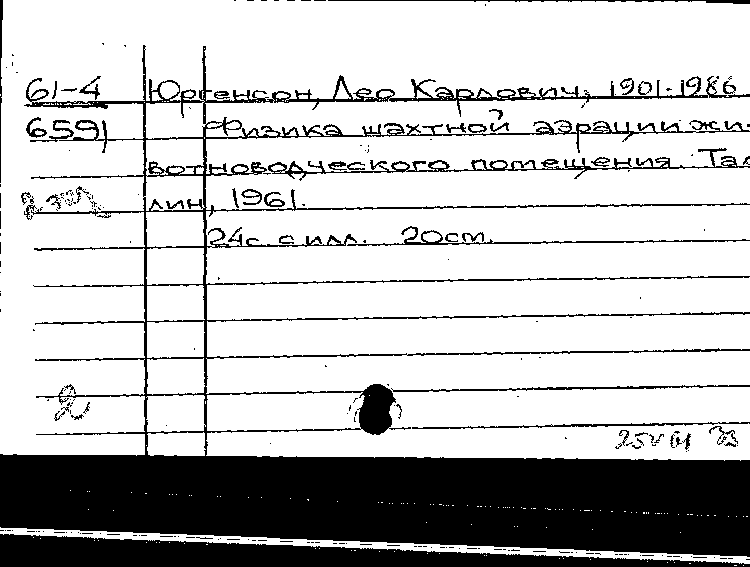 61-4 Юргенсон, Лео Карлович, 1901-1986
6591 Физика шахтной аэрации жи-
вотноводческого помещения. Тал
2 экз лин, 1961.
24с. с илл. 20cm.
2
25 V 61